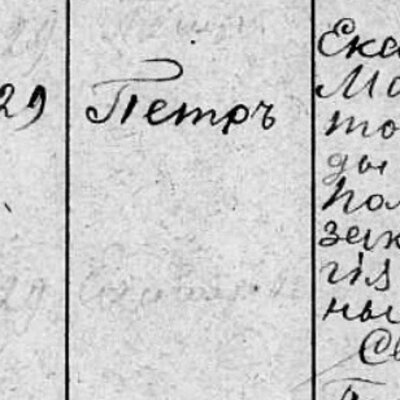 29
Петръ
Ека
Ма
то
ды
пол
зак
гія
ны
Св